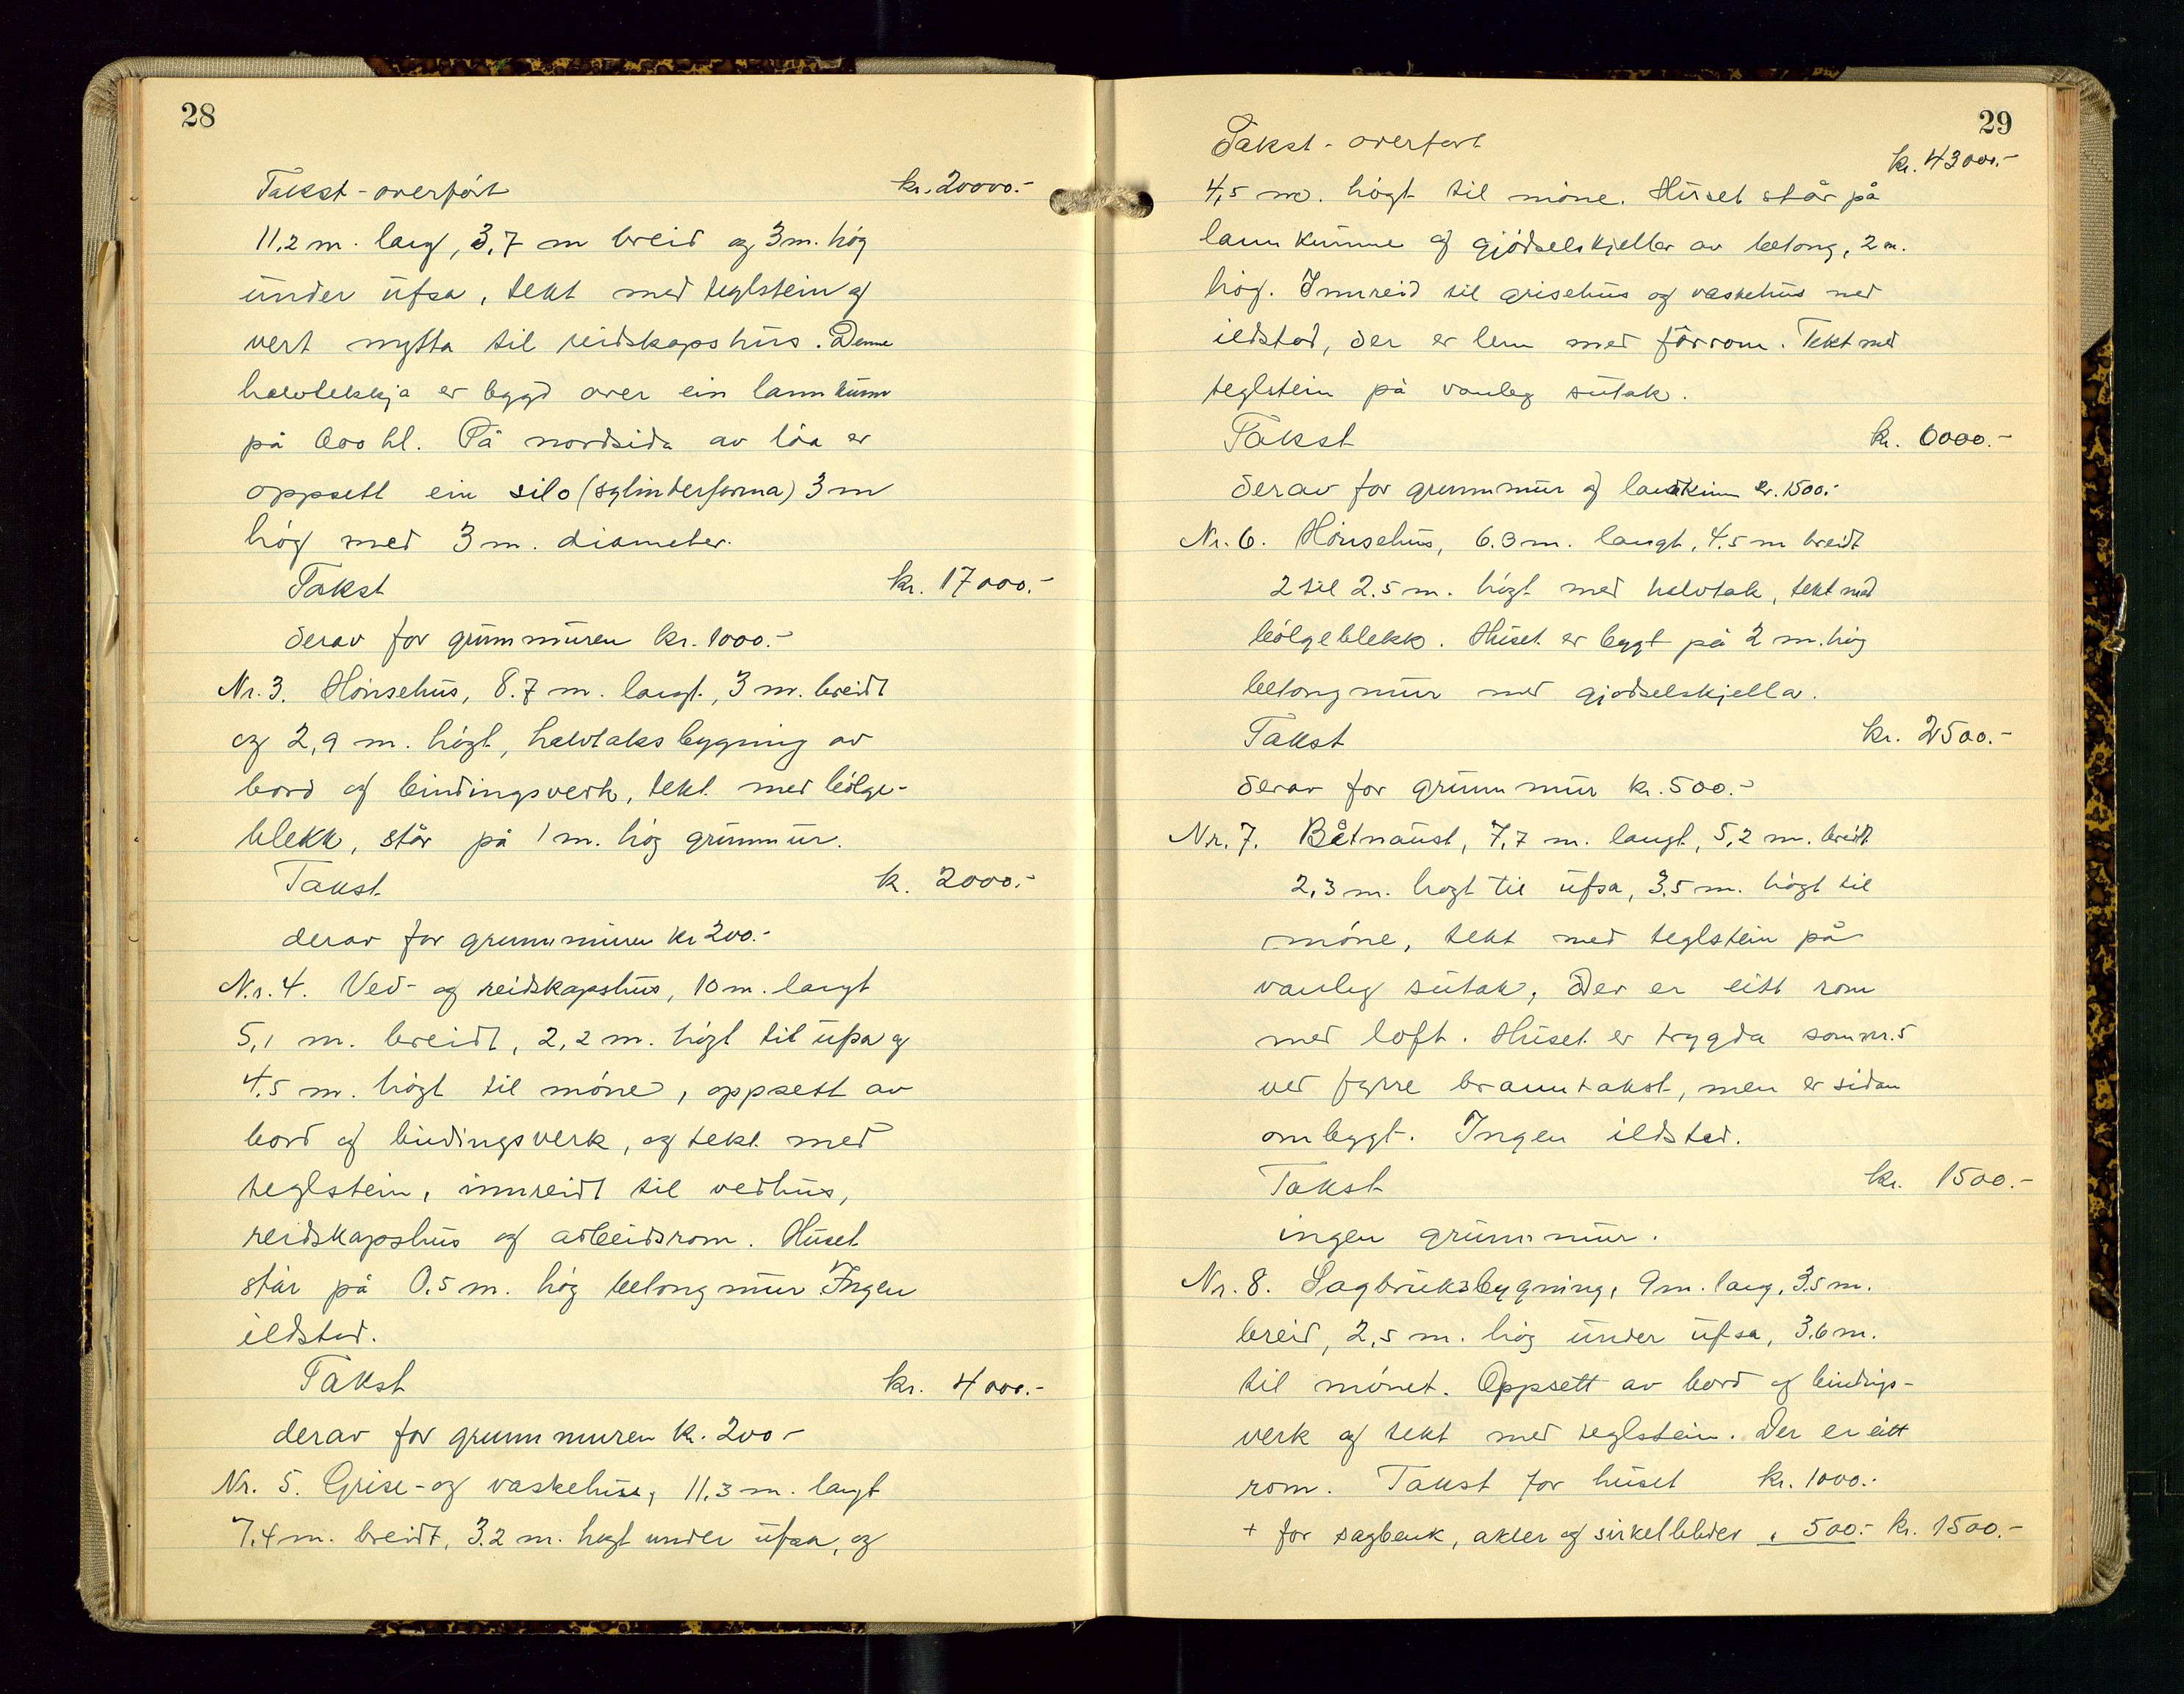 28
Takst - overfört kr. 20000.-
11,2 m. lang, 3,7 m breid og 3 m. hög
under ufsa, tekt med teglstein og
vert nytta til reidskapshus. Denne
halvtekkja er bygd over ein lannkum
på 600 hl. På nordsida av löa er
oppsett ein silo (sylinderforma) 3 m
hög med 3 m. diameter.
Takst kr. 17000.-
derav for grunnmuren kr. 1000.-
Nr. 3. Hönsehus, 8.7 m. langt, 3 m. breidt
og 2,9 m. högt, halvtaksbygning av
bord og bindingsverk, tekt med bölge-
blekk, står på 1 m. hög grunnmur.
Takst k. 2000.-
derav for grunnmuren kr 200.-
Nr. 4. Ved- og reidskapshus, 10 m. langt
5,1 m. breidt, 2,2 m. högt til ufsa og
4.5 m. högt til möne, oppsett av
bord og bindingsverk, og tekt med
teglstein, innreidt til vedhus,
reidskapshus og arbeidsrom. Huset
står på 0.5 m. hög betongmur Ingen
ildstad.
Takst kr. 4000.-
derav for grunnmuren kr. 200 -
Nr. 5. Grise- og vaskehus, 11.3 m. langt
7.4 m. breidt, 3.2 m. hogt under ufsa, og
29
Takst - overfort kr. 43000.-
4,5 m. högt til möne. Huset står på
lannkumme og gjödselskjeller av betong, 2 m.
hög. Innreid til grisehus og vaskehus med
ildstad, der er lem med fórrom. Tekt med
teglstein på vanleg sutak.
Takst kr. 6000.-
derav for grunnmur og lannkum kr. 1500.-
Nr. 6. Hönsehus, 6.3 m. langt, 4.5 m breidt
2 til 2.5 m. högt med halvtak, tekt med
bölgeblekk. Huset er bygt på 2 m. hög
betongmur med gjodselskjella.
Takst kr. 2500.-
derav for grunnmur kr. 500.-
Nr. 7. Båtnaust, 7,7 m. langt, 5,2 m. breidt
2,3 m. hogt til ufsa, 3.5 m. högt til
möne, tekt med teglstein på
vanleg sutak, der er eitt rom
med loft. Huset er trygda som nr. 5
ved fyrre branntakst, men er sidan
ombygt. Ingen ildstad.
Takst kr. 1500.-
ingen grunnmur.
Nr. 8. Sagbruksbygning, 9 m. lang, 3.5 m.
breid, 2,5 m. hög under ufsa, 3.6 m.
til mönet. Oppsett av bord og bindings-
verk og tekt med teglstein. Der er eitt
rom. Takst for huset kr. 1000.-
+ for sagbenk, aksler og sirkelblader " 500.- kr. 1500.-